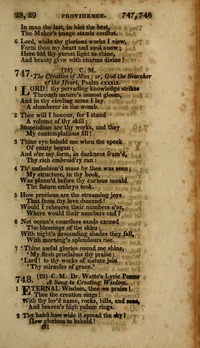 28, 29 PROVIDENCE. 747, 748
In man the last, in him the best,
The Maker's image stands confest.
6 Lord, while thy glorious works I view,
Form thou my heart and soul anew;
Here bid thy purest light to shine,
And beauty glow with charms divine!
747. (29) C. M.
The Creation of Man; or, God the Searcher
of the Heart, Psalm cxxxix.
1 LORD! thy pervading knowledge strikes
Through nature's inmost gloom,
And in thy circling arms I lay
A slumberer in the womb.
2 Thee will I honour, for I stand
A volume of thy skill;
Stupendous are thy works, and they
My contemplations fill!
3 Thine eye beheld me when the speck
Of entity began;
And o'er my form, in darkness fram'd,
Thy rich embroid'ry ran:
4 Th' unfashion'd mass by thee was seen;
My structure, in thy book,
Was plann'd before thy curious mould
The future embryo took.
5 How precious are the streaming joys
That from thy love descend!
Would I rehearse their numbers o'er,
Where would their numbers end?
6 Not ocean's countless sands exceed
The blessings of the skies;
With night's descending shades they fall,
With morning's splendours rise.
7 'Thine awful glories round me shine,
'My flesh proclaims thy praise;
'Lord! to thy works of nature join
'Thy miracles of grace.'
748. (29) C. M. Dr. Watts's Lyric Poems
A Song to Creating Wisdom.
1 ETERNAL Wisdom, thee we praise!
Thee the creation sings!
With thy lov'd name, rocks, hills, and seas,
And heaven's high palace rings.
2 Thy hand how wide it spread the sky!
How glorious to behold!